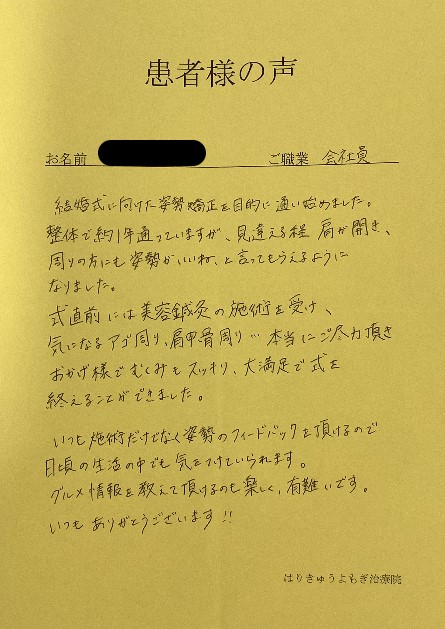 患者様の声
お名前 ご職業 会社員
結婚式に向けた姿勢矯正を目的に通い始めました。
整体で約1年通っていますが、見違える程 肩が開き、
周りの方にも姿勢がいいね、と言ってもらえるように
なりました。
式直前には美容鍼灸の施術を受け、
気になるアゴ周り、肩甲骨周り… 本当にご尽力頂き
おかげ様でむくみもスッキリ、大満足で式を
終えることができました。
いつも施術だけでなく姿勢のフィードバックを頂けるので
日頃の生活の中でも気をつけていられます。
グルメ情報を教えて頂けるのも楽しく、有難いです。
いつもありがとうございます!!
はりきゅうよもぎ治療院